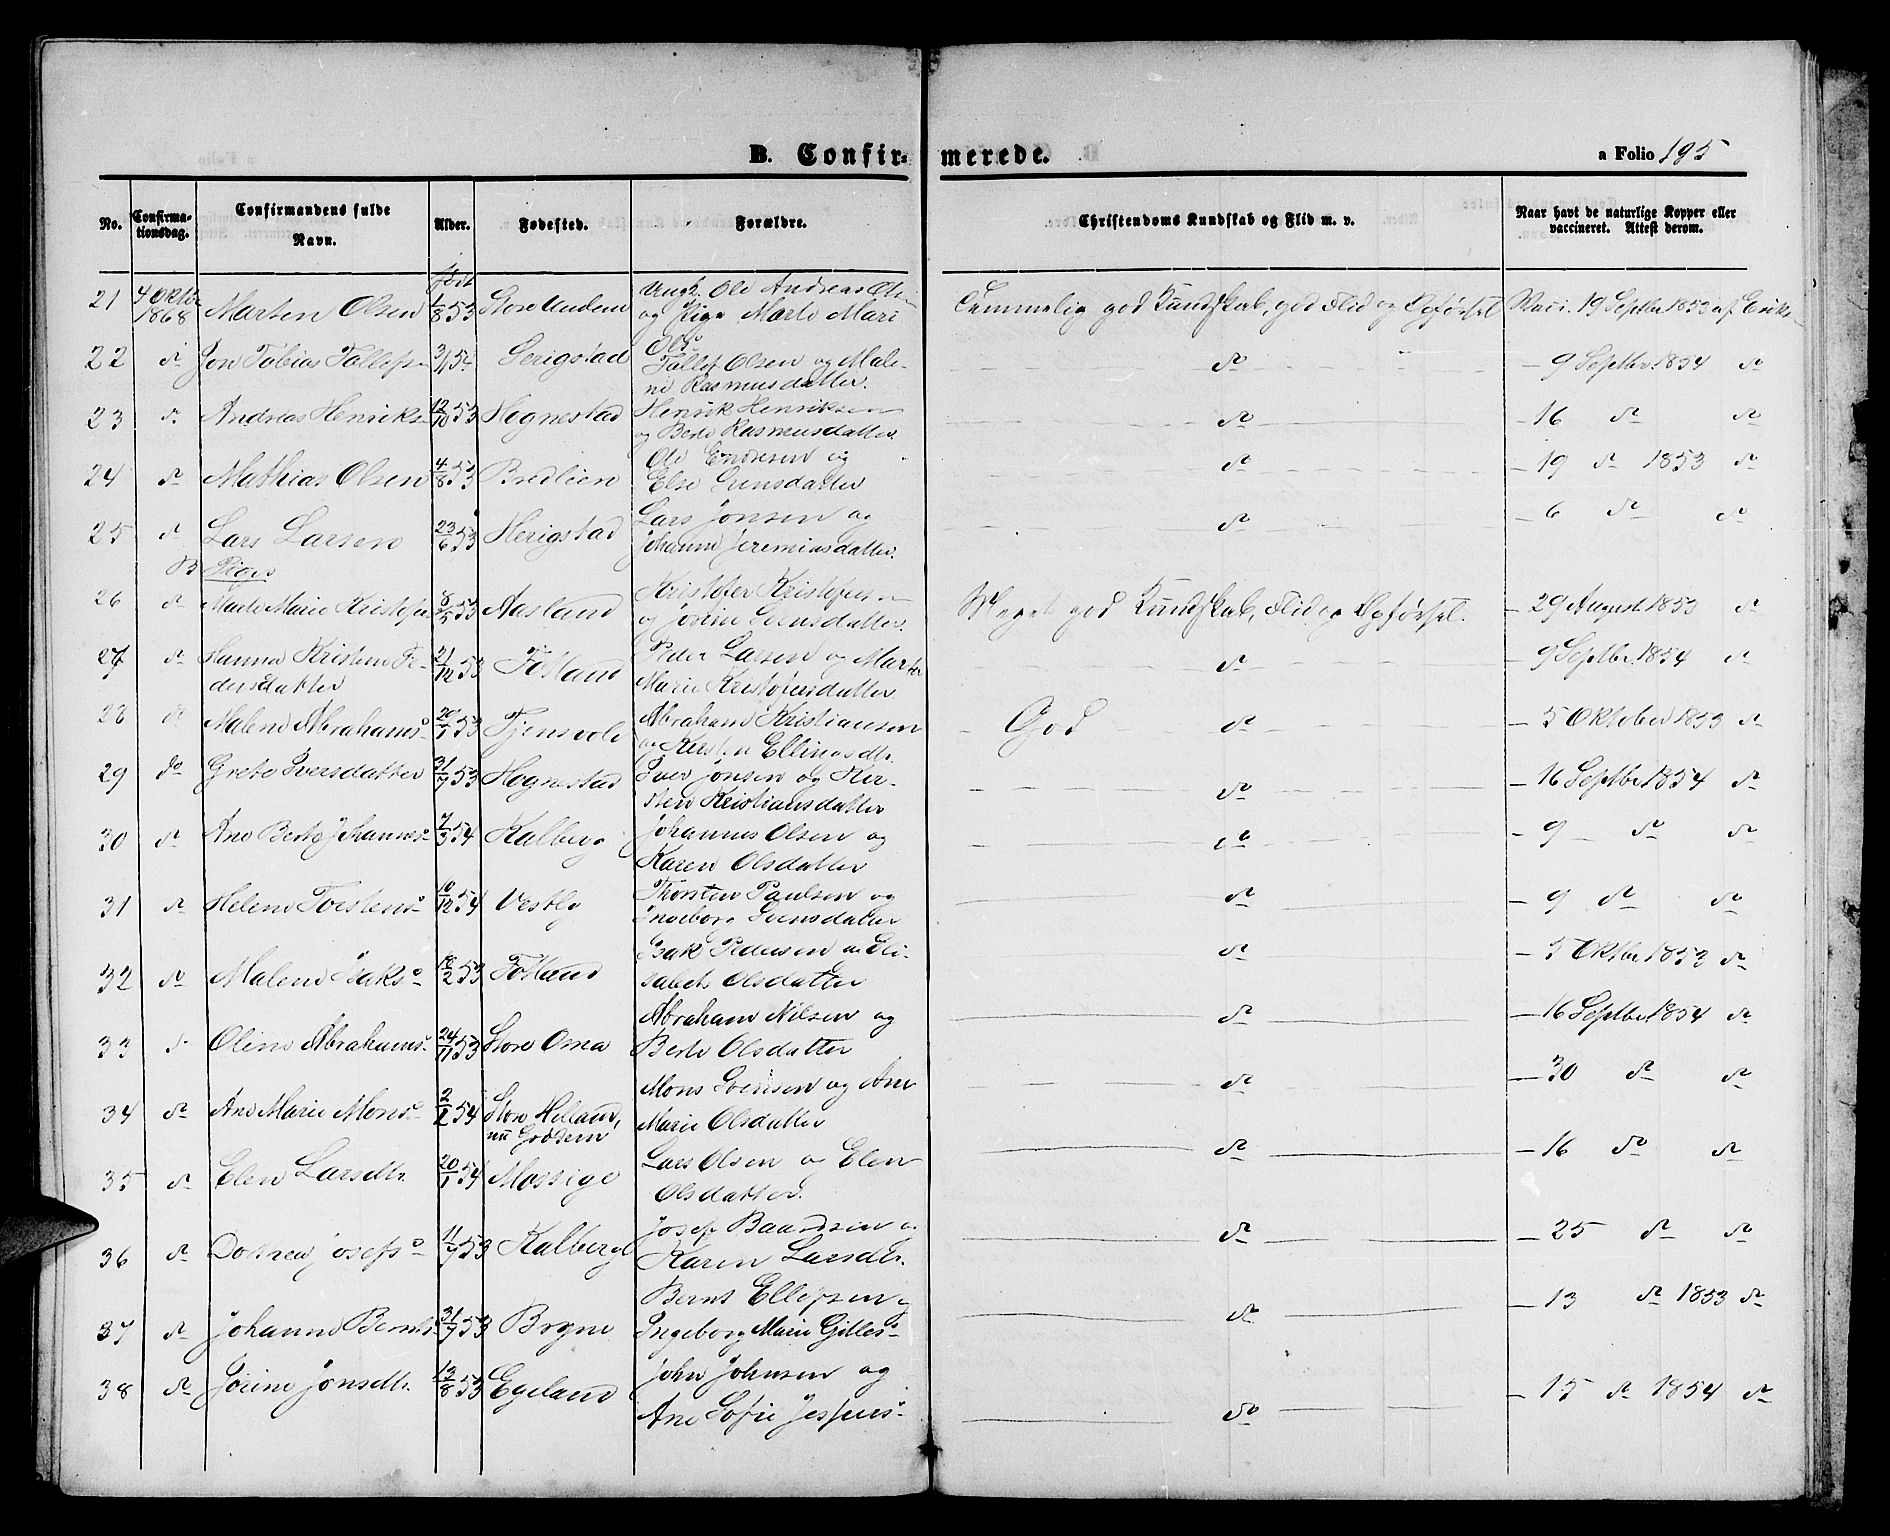 B. Confir-merede.
a Folio 195
No. Confirmationsdag. Confirmandens fulde Navn. Alder. Fødested. Forældre. Christendoms Kundskab og Flid m. v. Naar havt de naturlige Kopper eller vaccineret. Attest derom.
født
21 4 Oktbr 1868 Marten Olsen 1/8 53 Store Undem Ungk. Ole Andreas Ols og Pige Marte Marie Olsd Temmelig god Kundskab, god Flid og Opførsel Vacc. 19 Septbr 1853 af Eriks
22 do Jon Tobias Tollefs 54 Serigstad Tollef Olsen og Malene Rasmusdatter. do 9 Septbr. 1854 do
23 do Andreas Henriks 12/10 53 Hognestad Henrik Henriksen og Berte Rasmusdatter. do 16 do do
24 do Mathias Olsen 4/8 53 Bredlien Ole Endresen og Else Svensdatter do 19 do 1853 do
25 do Lars Larsen 23/6 53 Herigstad Lars Jonsen og Johanne Jeremiasdatter. do 6 do do
B Piger
26 do Marte Marie Kristofer 53 Aasland Kristofer Kristofersen og Jorine Svensdatter. Meget god Kundskab, Flid og Opførsel. 29 August 1853 do
27 do Hanna Kristine Pedersdatter 21/12 53 Fotland Peder Larsen og Marte Marie Kristofersdatter do 9 Septbr. 1854 do
28 do Malene Abrahams 53 Tjensvold Abraham Kristiansen og Kersten Elliasdtr. God do 5 Oktober 1853 do
29 do Grete Iversdatter 31/7 53 Hognestad Iver Jonsen og Kersten Kristiansdatter do 16 Septbr 1854 do
30 do Ane Berte Johannes 7/3 54 Kalberg Johannes Olsen og Karen Olsdatter do 9 do do
31 do Helene Torstens 10/12 54 Vestly Thorsten Paulsen og Ingeborg Svensdatter do 9 do do
32 do Malene Isaks 18/2 53 Fotland Isak Pedersen og Elisabet Olsdatter do 5 Oktbr 1853 do
33 do Oline Abrahams 24/11 53 Store Oma Abraham Nilsen og Berte Olsdatter do 16 Septbr 1854 do
34 do Ane Marie Mons 54 Store Helland, nu Godsem Mons Svensen og Ane Marie Olsdatter do 30 do do
35 do Elen Larsdtr. 20/1 54 Mossige Lars Olsen og Elen Olsdatter. do 16 do do
36 do Dortea Josefs 11/7 53 Kalberg Josef Baardsen og Karen Larsdtr. do 25 do do
37 do Johanne Bernts 31/7 53 Bryne Bernt Ellefsen og Ingeborg Marie Gilles do 13 do 1853 do
38 do Jorine Jonsdtr. 13/8 53 Egeland John Johnsen og Ane Sofie Jespers do 15 do 1854 do